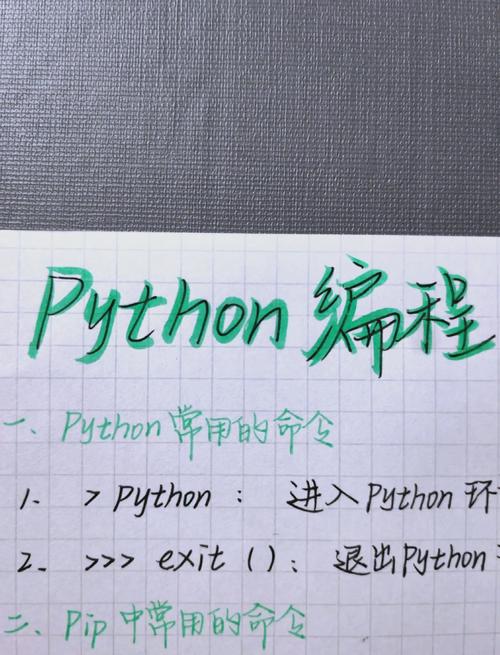 Python 编程
一、Python 常用的命令
1. > Python : 进入Python 环
2. >>> exit (): 退出Python
二、Pip 中常用的命令